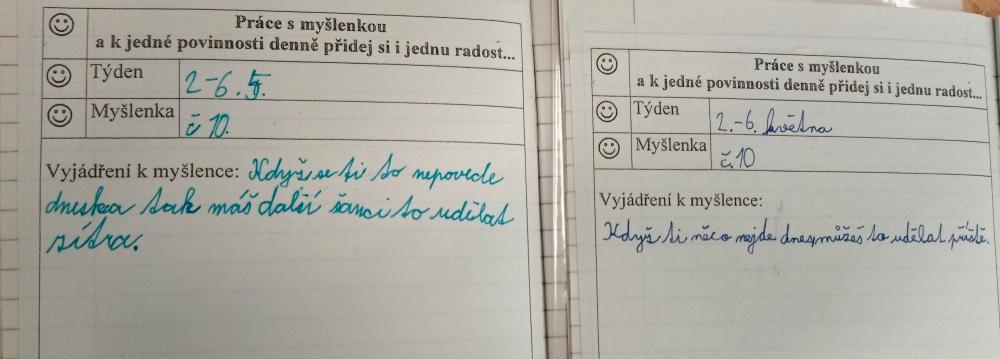 Práce s myšlenkou
a k jedné povinnosti denně přidej si i jednu radost...
Týden 2-6.5.
Myšlenka č 10.
Vyjádření k myšlence: Když se ti to nepovede
dneska tak máš další šanci to udělat
zítra.
Práce s myšlenkou
a k jedné povinnosti denně přidej si i jednu radost...
Týden 2.-6. května
Myšlenka č.10
Vyjádření k myšlence:
Když ti něco nejde dnes, můžeš to udělat příště.